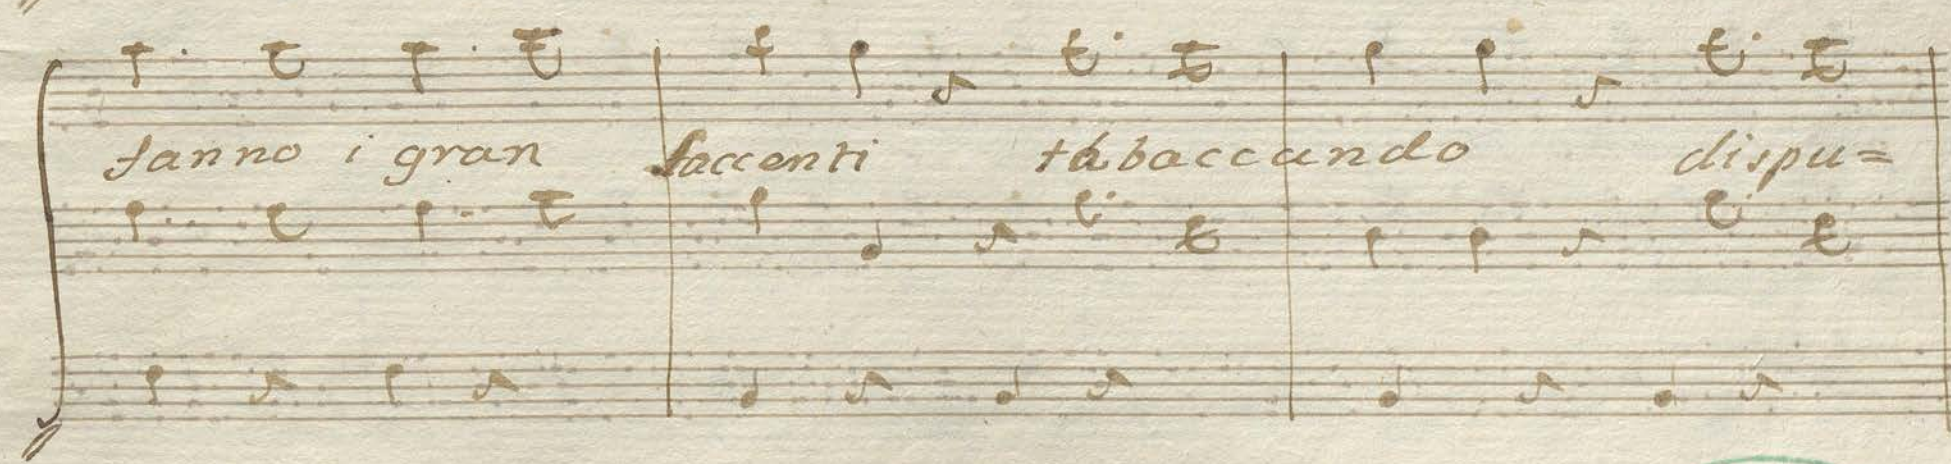 fanno i gran saccenti tabaccando dispu=